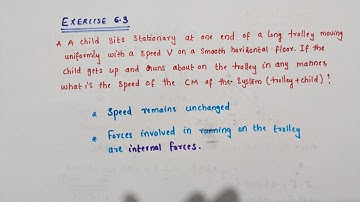 EXERCISE 6.3
A child sits stationary at one end of a long trolley moving
uniformly with a speed V on a smooth horizontal floor. If the
child gets up and runs about on the trolley in any manner,
what is the speed of the CM of the system (trolley+child)?
* Speed remains unchanged
* Forces involved in running on the trolley
are internal forces.